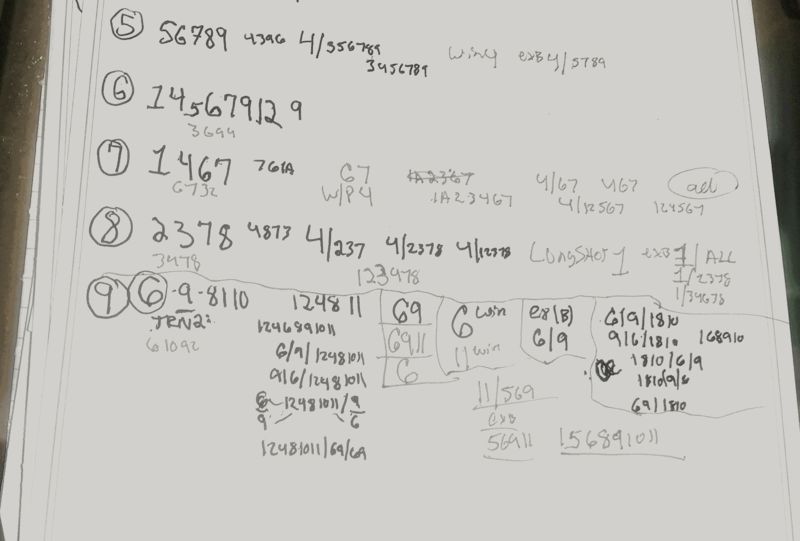 5 56789 4396 4/356789 win4 exB4/5789
3456789
6 14567912 9
3694
7 1467 761A 67 1A2367 4/67 467 all
6732 W/P4 1A23467 4/12567 124567
8 2378 4873 4/237 4/2378 4/12378 LongShot 1 exB 1/ALL
3478 123478 1/2378
1/34678
9 6-9-8110 124811 69 6 win ex(B) 6/9/1810
TRN2: 1246891011 6911 11 win 6/9 9/6/1810 168910
61092 6/9/12481011 6 1810/6/9
9/6/12481011 11/569 1810/9/6
6 12481011/9 exB 69/1810
9 6 56911 156891011
12481011/69/69